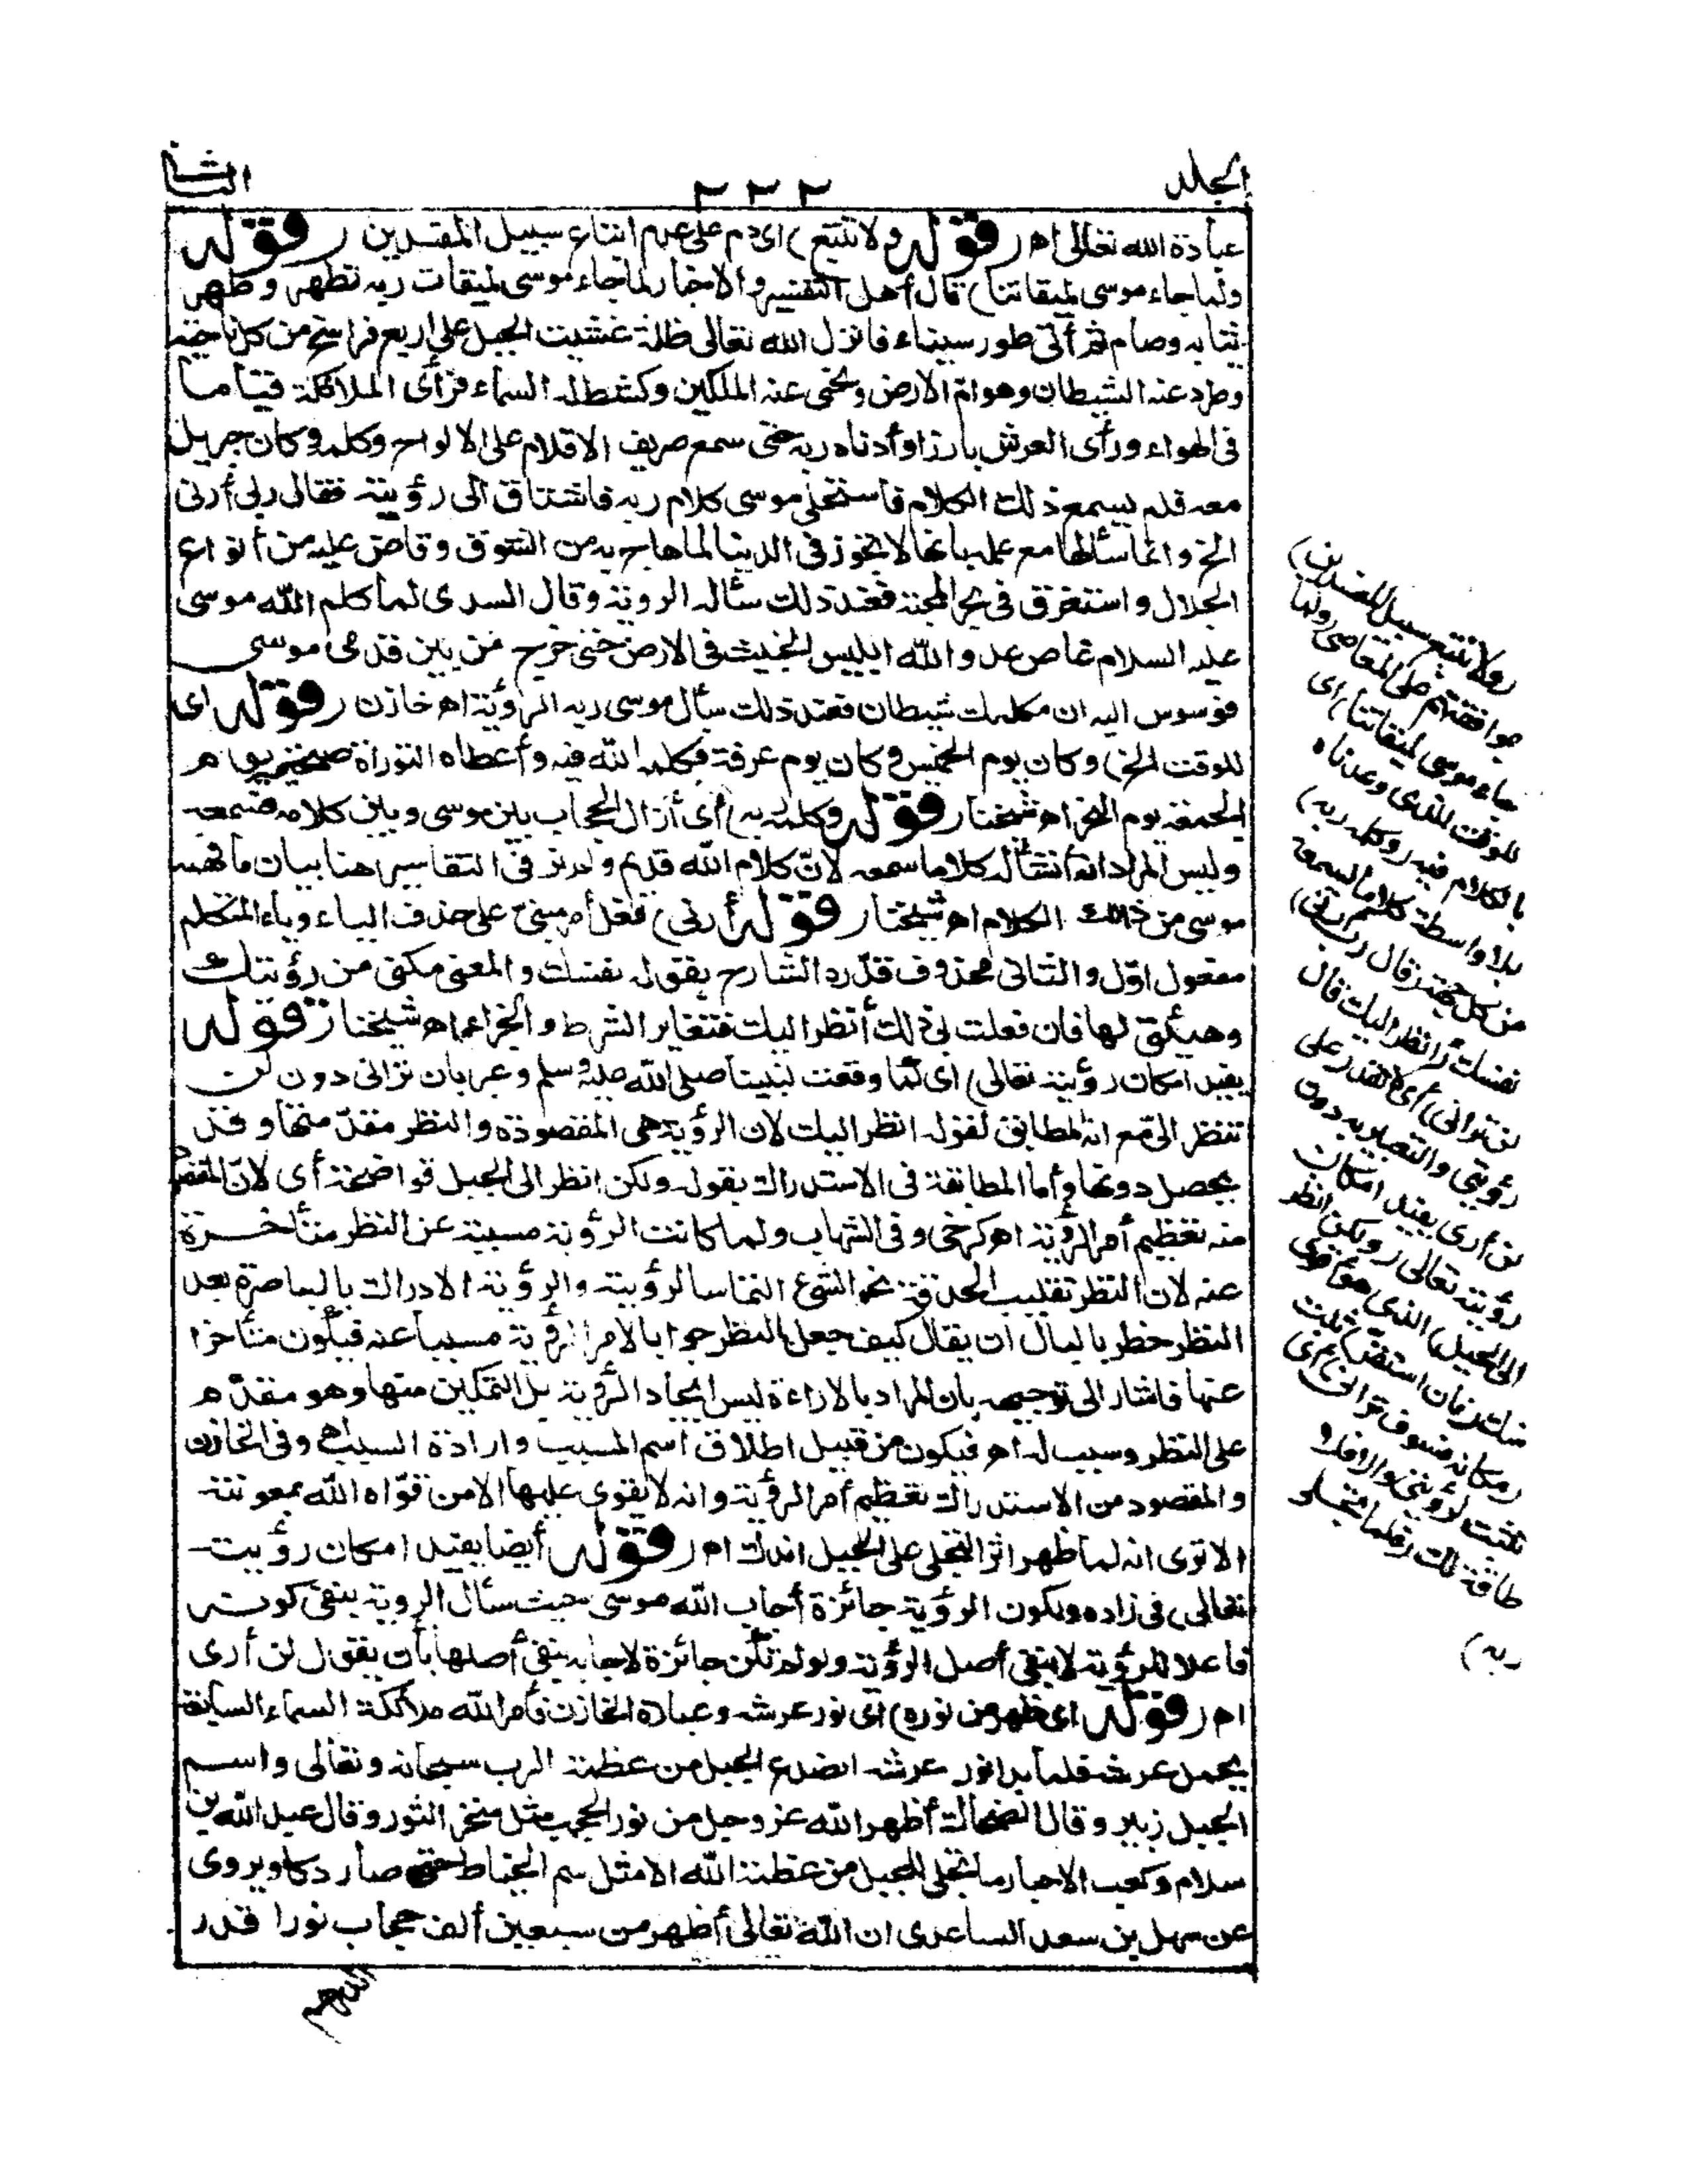 المجلد
٢٢٢
الثانى
عبادة الله تعالى اهـ (قوله ولا تتبع) اى دم على عدم اتباع سبيل المفسدين (قوله
ولما جاء موسى لميقاتنا) قال أهل التفسير والاخبار لما جاء موسى لميقات ربه تطهر وطهر
ثيابه وصام ثم أتى طور سيناء فانزل الله تعالى ظلة غشيت الجبل على اربع فراسخ من كل ناحية
وطرد عنه الشيطان وهوام الارض ونحى عنه الملكين وكشط له السماء فرأى الملائكة قياما
فى الهواء ورأى العرش بارزا وأدناه ربه حتى سمع صريف الاقلام على الالواح وكلمه وكان جبريل
معه فلم يسمع ذلك الكلام فاستحلى موسى كلام ربه فاشتاق الى رؤيته فقال رب أرنى
الخ وانما سألها مع علمه بانها لا تجوز فى الدنيا لما هاج به من الشوق وفاض عليه من أنواع
الجلال واستغرق فى بحر المحبة فعند ذلك سأله الرؤية وقال السدى لما كلم الله موسى
عليه السلام غاص عدو الله ابليس الخبيث فى الارض حتى خرج من بين قدمى موسى
فوسوس اليه ان مكلمك شيطان فعند ذلك سأل موسى ربه الرؤية اهـ خازن (قوله اى
للوقت الخ) وكان يوم الخميس وكان يوم عرفة فكلمه الله فيه وأعطاه التوراة صبيحة يوم
الجمعة يوم النحر اهـ شيخنا (قوله وكلمه ربه) أى أزال الحجاب بين موسى وبين كلامه فسمعه
وليس المراد انه أنشأ له كلاما سمعه لانّ كلام الله قديم ولم نر فى التفاسير هنا بيان ما فهمه
موسى من ذلك الكلام اهـ شيخنا (قوله أرنى) فعل أمر مبنى على حذف الياء وياء المتكلم
مفعول اوّل والثانى محذوف قدّره الشارح بقوله نفسك والمعنى مكنى من رؤيتك
وهيئنى لها فان فعلت بى ذلك أنظر اليك فتغاير الشرط والجزاء اهـ شيخنا (قوله
يفيد امكان رؤيته تعالى) اى كما وقعت لنبينا صلى الله عليه وسلم وعبر بان ترانى دون لن
تنظر الىّ مع انه المطابق لقوله انظر اليك لان الرؤية هى المقصودة والنظر مقدّمتها وقد
يحصل دونها وأما المطابقة فى الاستدراك بقوله ولكن انظر الى الجبل فواضحة أى لانّ القصد
منه تعظيم أمر الرؤية اهـ كرخى وفى الشهاب ولما كانت الرؤية مسببة عن النظر متأخرة
عنه لان النظر تقليب الحدقة نحو الشئ التماسا لرؤيته والرؤية الادراك بالباصرة بعد
النظر خطر بالبال ان يقال كيف جعل النظر جوابا لامر الرؤية مسببا عنه فيكون متأخرا
عنها فاشار الى توجيهه بان المراد بالاراءة ليس ايجاد الرؤية بل التمكين منها وهو مقدّم
على النظر وسبب له اهـ فيكون من قبيل اطلاق اسم المسبب وارادة السبب اهـ وفى الخازن
والمقصود من الاستدراك تعظيم أمر الرؤية وانه لا يقوى عليها الا من قوّاه الله بمعونته
الا ترى انه لما ظهر اثر التجلى على الجبل اندك اهـ (قوله أيضا يفيد امكان رؤيته
تعالى) فى زاده ولكون الرؤية جائزة أجاب الله موسى حيث سأل الرؤية بنفى كونه
فاعلا للرؤية لا بنفى أصل الرؤية ولو لم تكن جائزة لاجابه بنفى أصلها بأن يقول لن أرى
اهـ (قوله اى ظهر من نوره) اى نور عرشه وعبارة الخازن فأمر الله ملائكة السماء السابعة
بحمل عرشه فلما بدا نور عرشه انصدع الجبل من عظمة الرب سبحانه وتعالى واسم
الجبل زبير وقال الضحاك أظهر الله عز وجل من نور الحجب مثل منخر الثور وقال عبد الله بن
سلام وكعب الاحبار ما تجلى للجبل من عظمة الله الا مثل سم الخياط حتى صار دكا ويروى
عن سهل بن سعد الساعدى ان الله تعالى أظهر من سبعين ألف حجاب نورا قدر
الدرهم
(ولا تتبع سبيل المفسدين)
موافقتهم على المعاصى (ولما
جاء موسى لميقاتنا) اى
للوقت الذى وعدناه
بالكلام فيه (وكلمه ربه)
بلا واسطة كلاما يسمعه
من كل جهة (قال رب أرنى)
نفسك (أنظر اليك قال
لن ترانى) أى لا تقدر على
رؤيتى والتعبير به دون
لن أرى يفيد امكان
رؤيته تعالى (ولكن انظر
الى الجبل) الذى هو أقوى
منك (فان استقر) ثبت
(مكانه فسوف ترانى) اى
تثبت لرؤيتى والا فلا
طاقة لك (فلما تجلى
ربه)